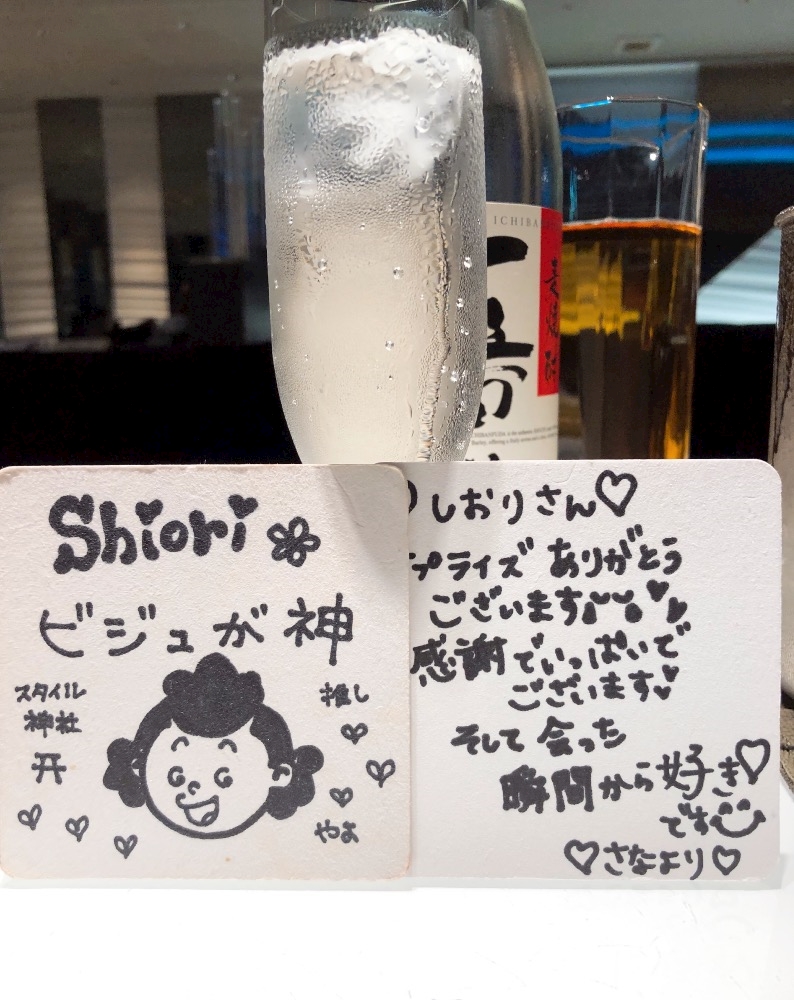 ICHIBA
一番
Shiori
ビジュが神
スタイル
神社
推し
やよ
♡しおりさん♡
プライズ ありがとう
ございます
感謝でいっぱいで
ございます
そして 会った
瞬間から好き♡
です
♡さなより♡